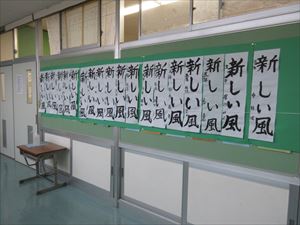 新しい風
新しい風
新しい風
新しい風
新しい風
新しい風
新しい風
新しい風
新しい風
新しい風
新しい風
新しい風
新しい風